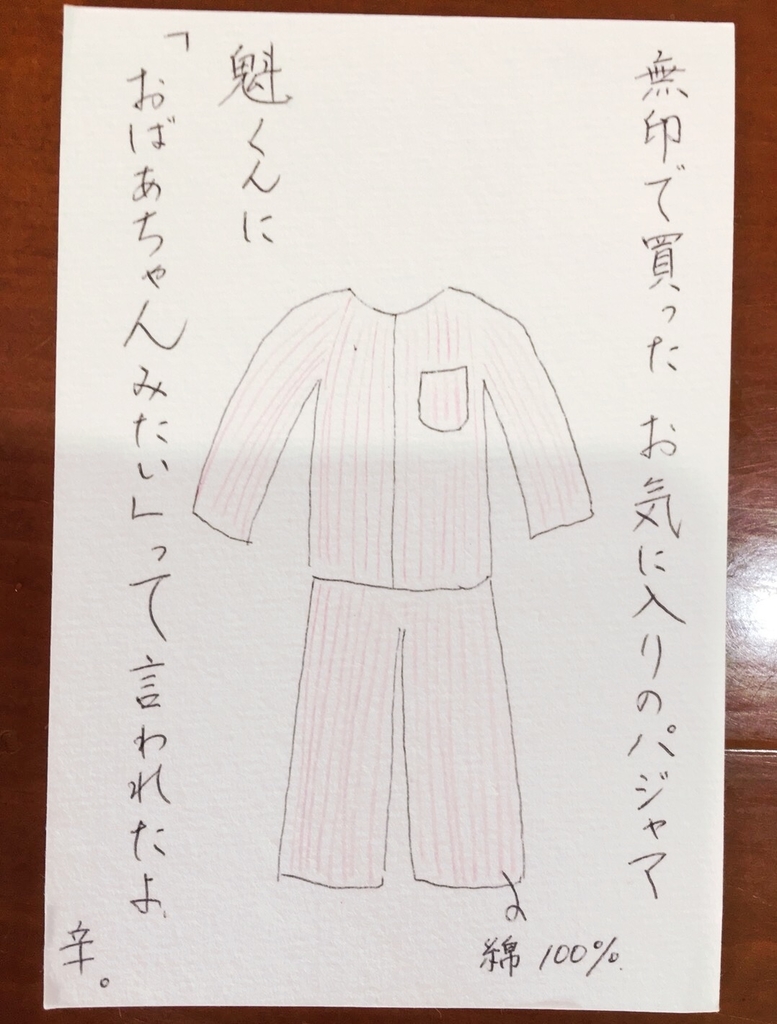 無印で買った お気に入りのパジャマ
魁くんに
「おばあちゃんみたい」って言われたよ
辛。
綿 100%